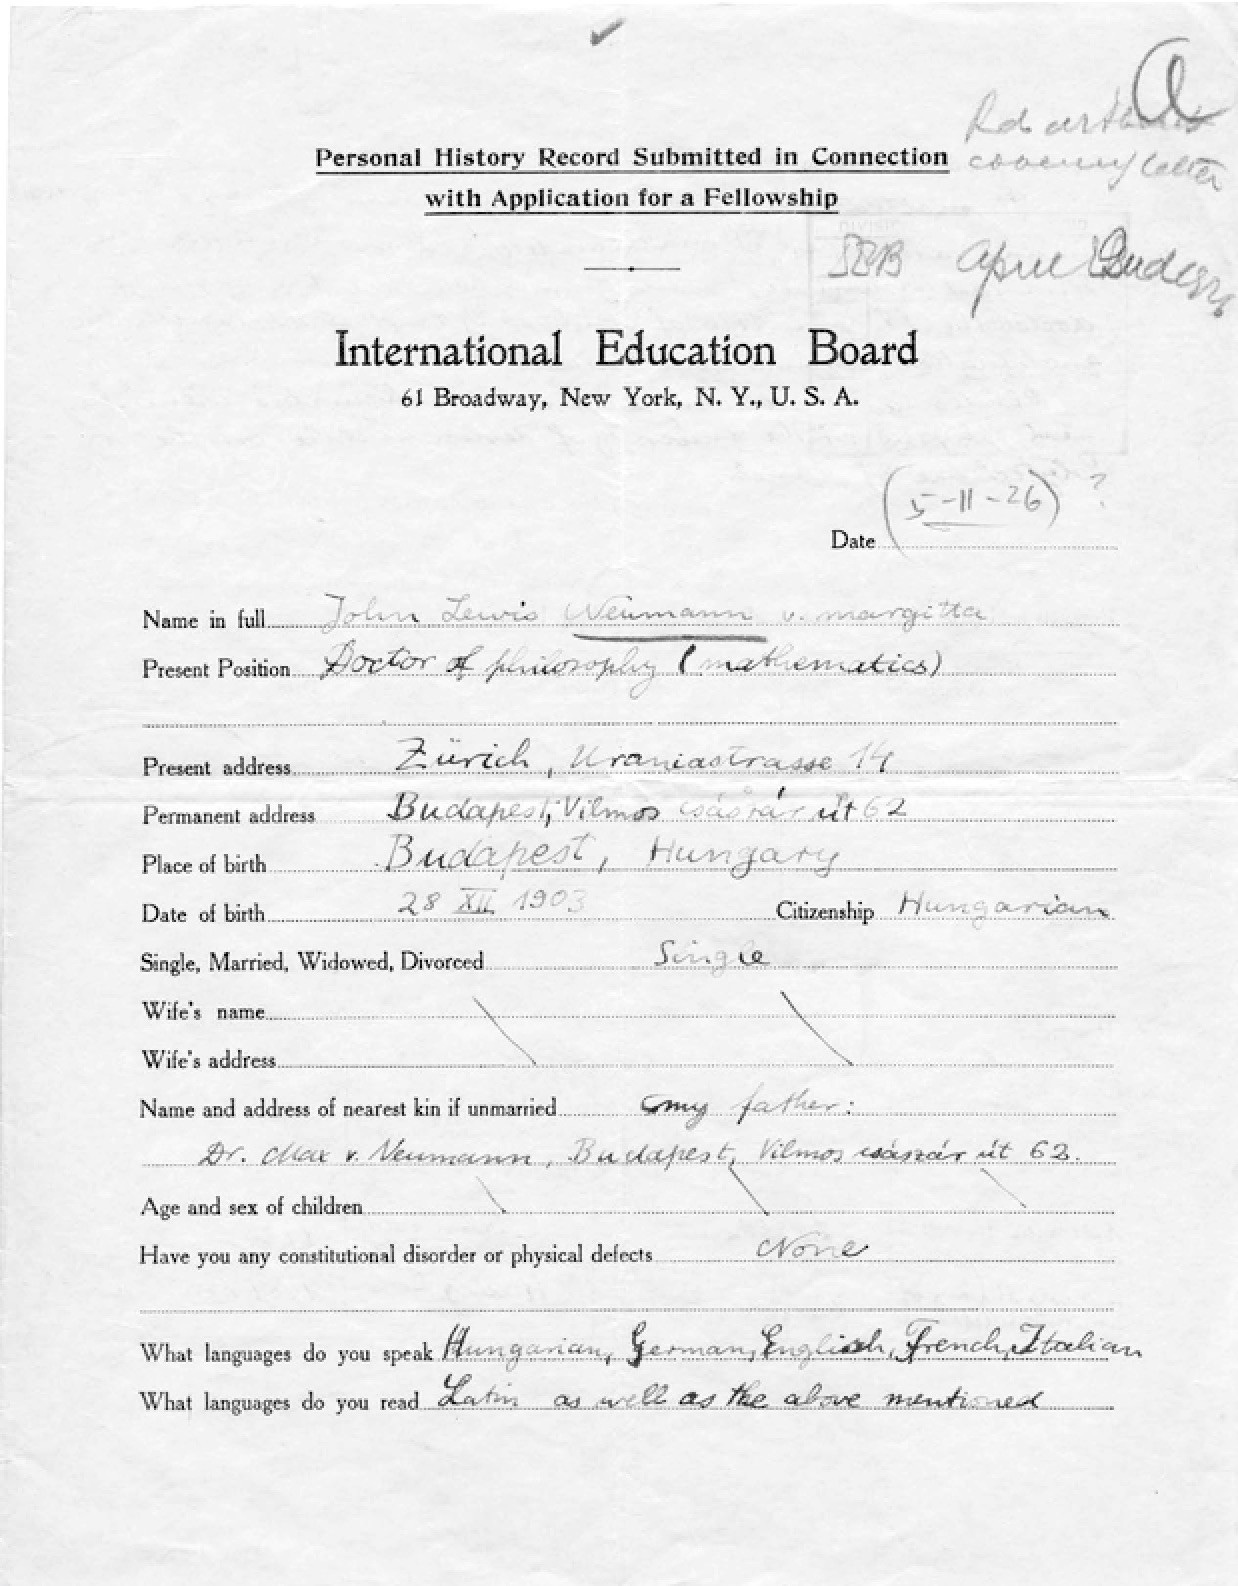 a
covering letter
Personal History Record Submitted in Connection
with Application for a Fellowship
IEB April Budget
International Education Board
61 Broadway, New York, N. Y., U. S. A.
Date (5-11-26) ?
Name in full John Lewis Neumann v. margitta
Present Position Doctor of philosophy (mathematics)
Present address Zürich, Uraniastrasse 14
Permanent address Budapest, Vilmos császár út 62
Place of birth Budapest, Hungary
Date of birth 28 XII 1903 Citizenship Hungarian
Single, Married, Widowed, Divorced Single
Wife's name
Wife's address
Name and address of nearest kin if unmarried my father:
Dr. Max v. Neumann, Budapest, Vilmos császár út 62.
Age and sex of children
Have you any constitutional disorder or physical defects None
What languages do you speak Hungarian, German, English, French, Italian
What languages do you read Latin as well as the above mentioned